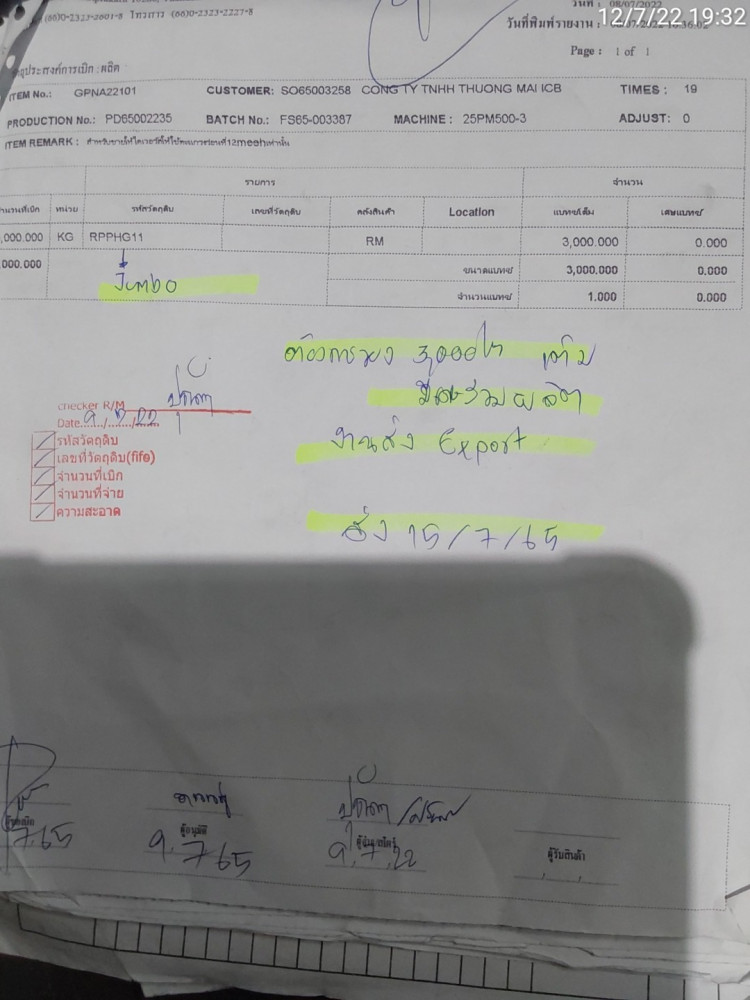 วันที่ : 08/07/2022
(66)0-2323-2601-8 โทรสาร (66)0-2323-2227-8
12/7/22 19:32
วันที่พิมพ์รายงาน :
Page : 1 of 1
ประสงค์การเบิก : ผลิต
ITEM No.: GPNA22101 CUSTOMER: SO65003258 CONG TY TNHH THUONG MAI ICB TIMES : 19
PRODUCTION No.: PD65002235 BATCH No.: FS65-003387 MACHINE : 25PM500-3 ADJUST: 0
ITEM REMARK :
รายการ จำนวน
จำนวนที่เบิก หน่วย รหัสวัตถุดิบ เลขที่วัตถุดิบ คลังสินค้า Location แบทซ์เต็ม เศษแบทซ์
,000.000 KG RPPHG11 RM 3,000.000 0.000
000.000 ขนาดแบทซ์ 3,000.000 0.000
Jumbo
จำนวนแบทซ์ 1.000 0.000
ต้องการของ 3,000 เต็ม
ผลิต
งานส่ง Export
ส่ง 15/7/65
checker R/M
Date. 9 / 7 / 22
รหัสวัตถุดิบ
เลขที่วัตถุดิบ(fifo)
จำนวนที่เบิก
จำนวนที่จ่าย
ความสะอาด
ผู้อนุมัติ
7.65 9.7.65 9.7.22
ผู้รับสินค้า